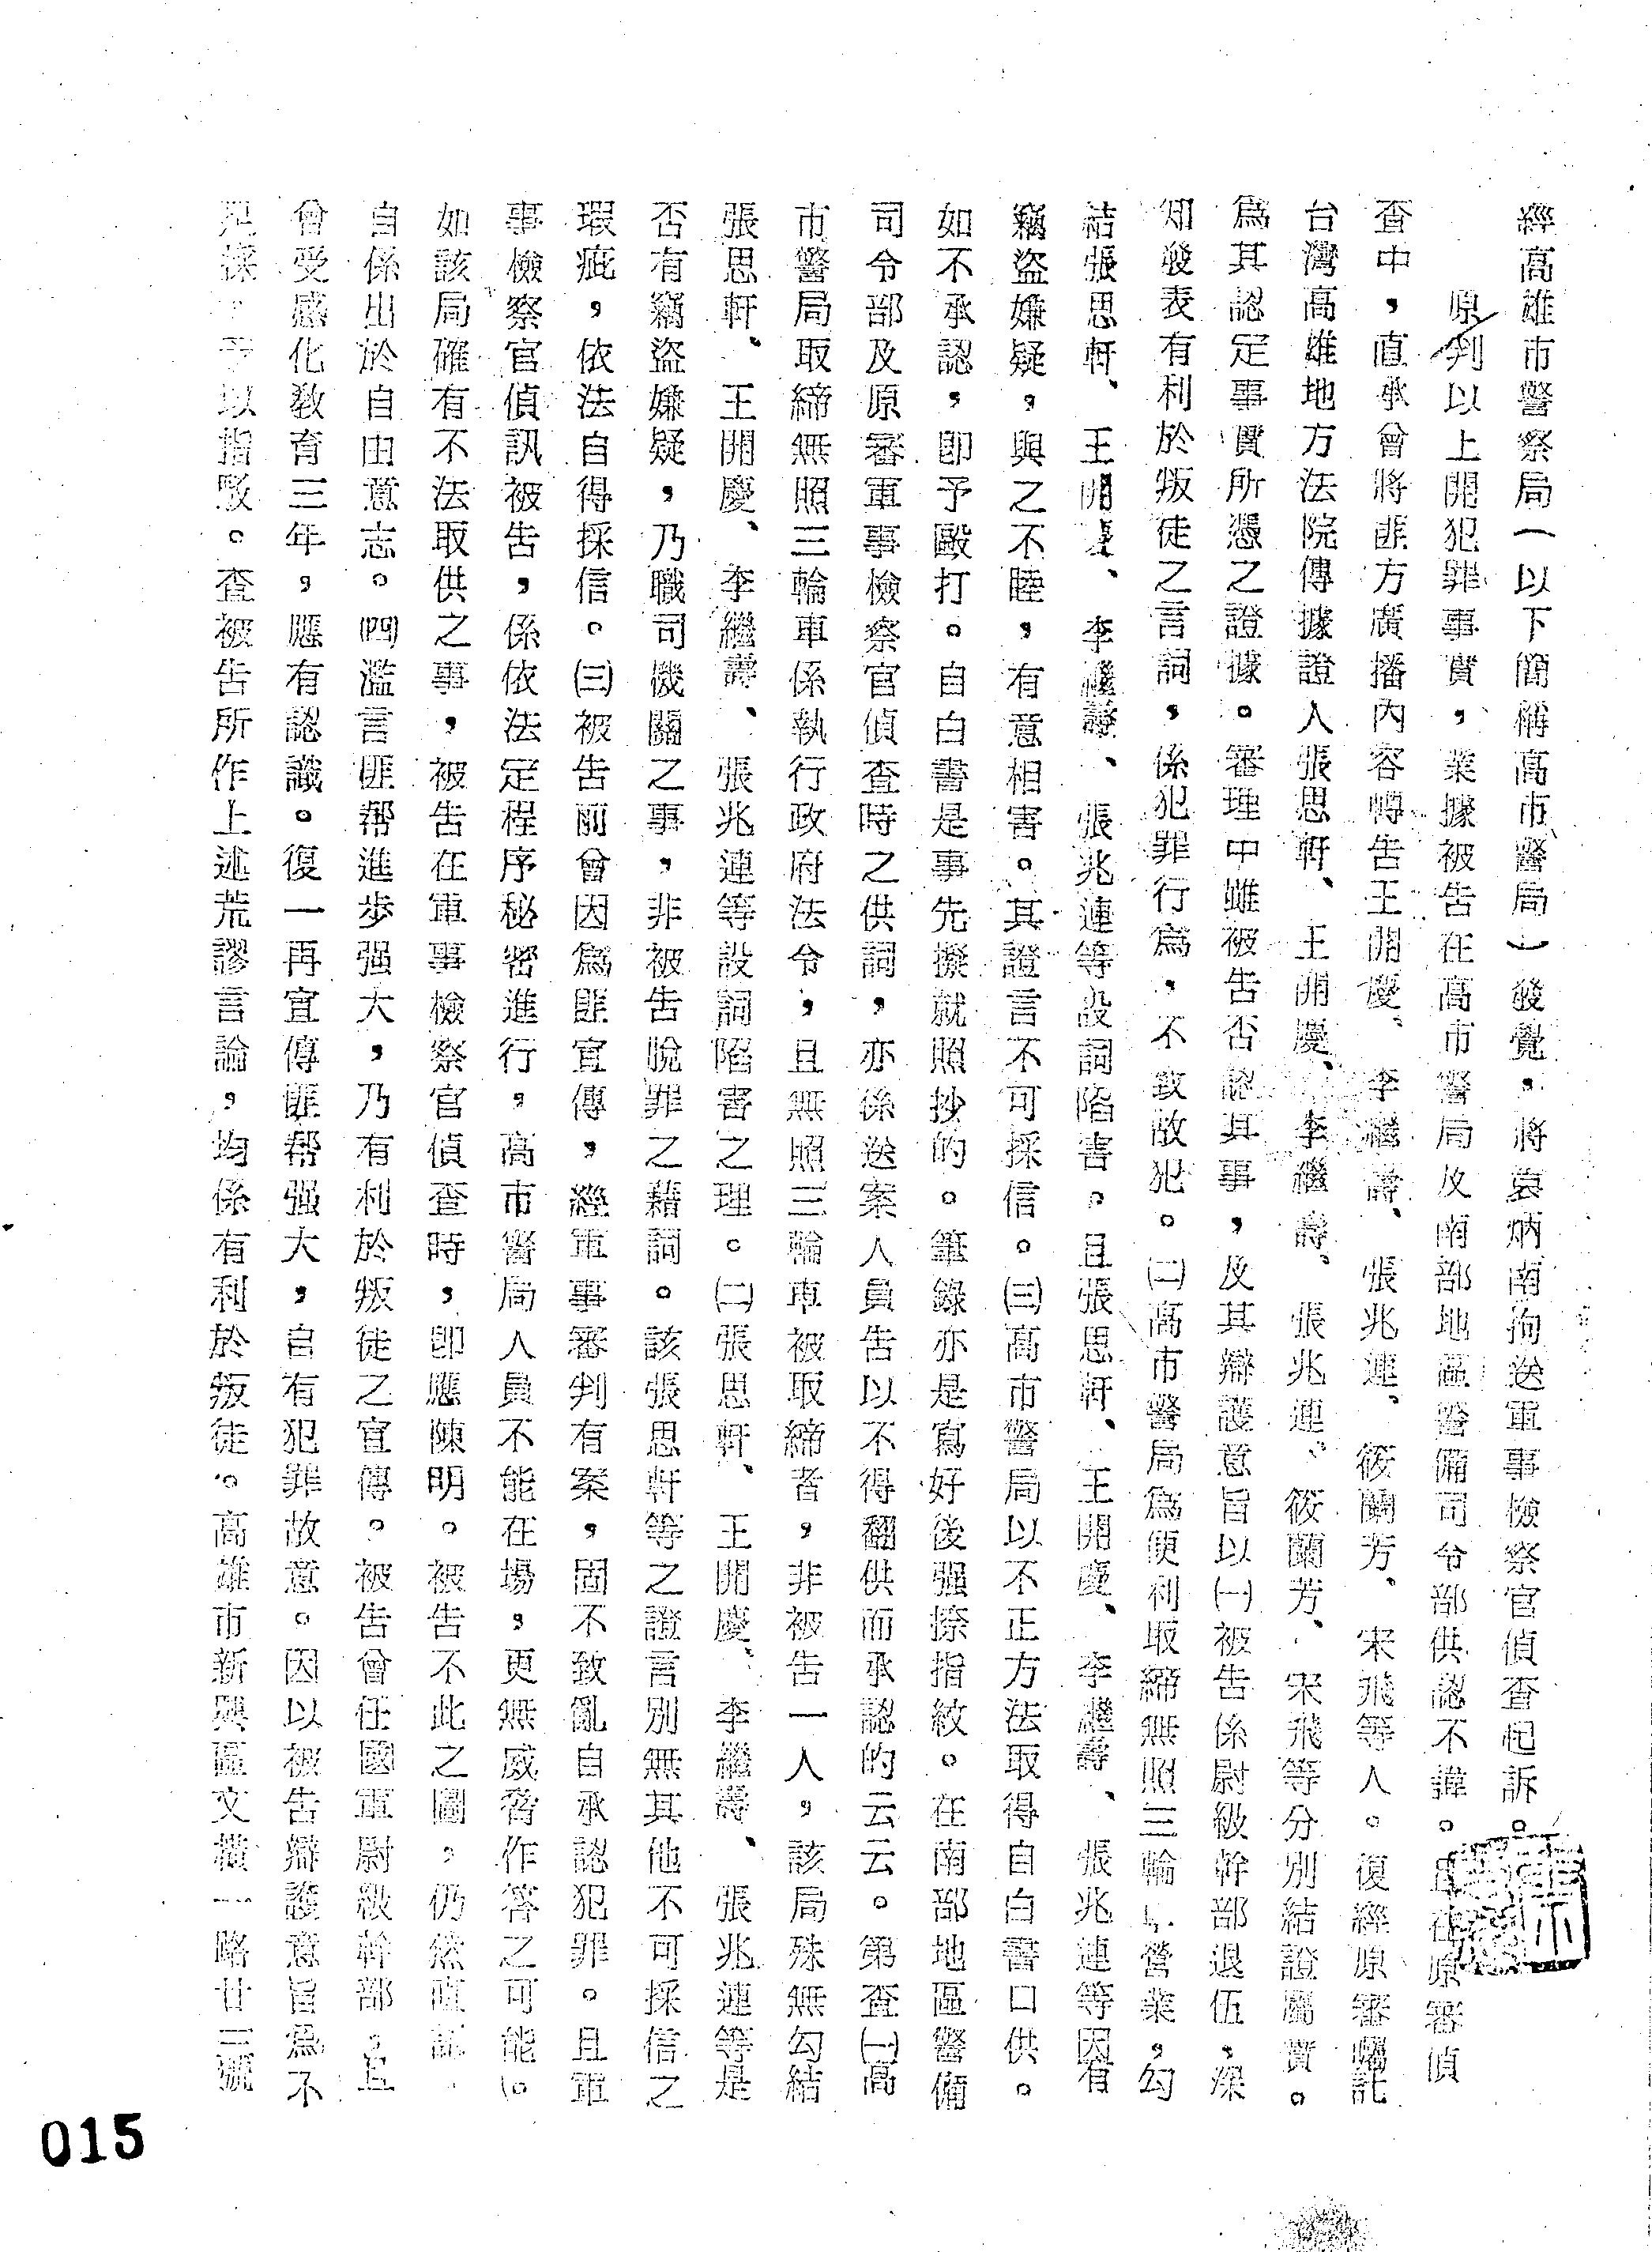 經高雄市警察局（以下簡稱高市警局）發覺，將袁炳南拘送軍事檢察官偵查起訴。
原判以上開犯罪事實，業據被告在高市警局及南部地區警備司令部供認不諱。且在原審偵
查中，直承曾將匪方廣播內容轉告王開慶、李繼壽、張兆連、筱蘭芳、宋飛等人。復經原審囑託
台灣高雄地方法院傳據證人張思軒、王開慶、李繼壽、張兆連、筱蘭芳、宋飛等分別結證屬實。
為其認定事實所憑之證據。審理中雖被告否認其事，及其辯護意旨以㈠被告係尉級幹部退伍，深
知發表有利於叛徒之言詞，係犯罪行為，不致故犯。㈡高市警局為便利取締無照三輪車營業，勾
結張思軒、王開慶、李繼壽、張兆連等設詞陷害。且張思軒、王開慶、李繼壽、張兆連等因有
竊盜嫌疑，與之不睦，有意相害。其證言不可採信。㈢高市警局以不正方法取得自白書口供。
如不承認，即予毆打。自白書是事先擬就照抄的。筆錄亦是寫好後强捺指紋。在南部地區警備
司令部及原審軍事檢察官偵查時之供詞，亦係送案人員告以不得翻供而承認的云云。第查㈠高
市警局取締無照三輪車係執行政府法令，且無照三輪車被取締者，非被告一人，該局殊無勾結
張思軒、王開慶、李繼壽、張兆連等設詞陷害之理。㈡張思軒、王開慶、李繼壽、張兆連等是
否有竊盜嫌疑，乃職司機關之事，非被告脫罪之藉詞。該張思軒等之證言別無其他不可採信之
瑕疵，依法自得採信。㈢被告前曾因為匪宣傳，經軍事審判有案，固不致亂自承認犯罪。且軍
事檢察官偵訊被告，係依法定程序秘密進行，高市警局人員不能在場，更無威脅作答之可能。
如該局確有不法取供之事，被告在軍事檢察官偵查時，即應陳明。被告不此之圖，仍然直認，
自係出於自由意志。㈣濫言匪帮進步强大，乃有利於叛徒之宣傳。被告曾任國軍尉級幹部，且
曾受感化教育三年，應有認識。復一再宣傳匪帮强大，自有犯罪故意。因以被告辯護意旨為不
足採，予以指駁。查被告所作上述荒謬言論，均係有利於叛徒。高雄市新興區文橫一路廿三號
015